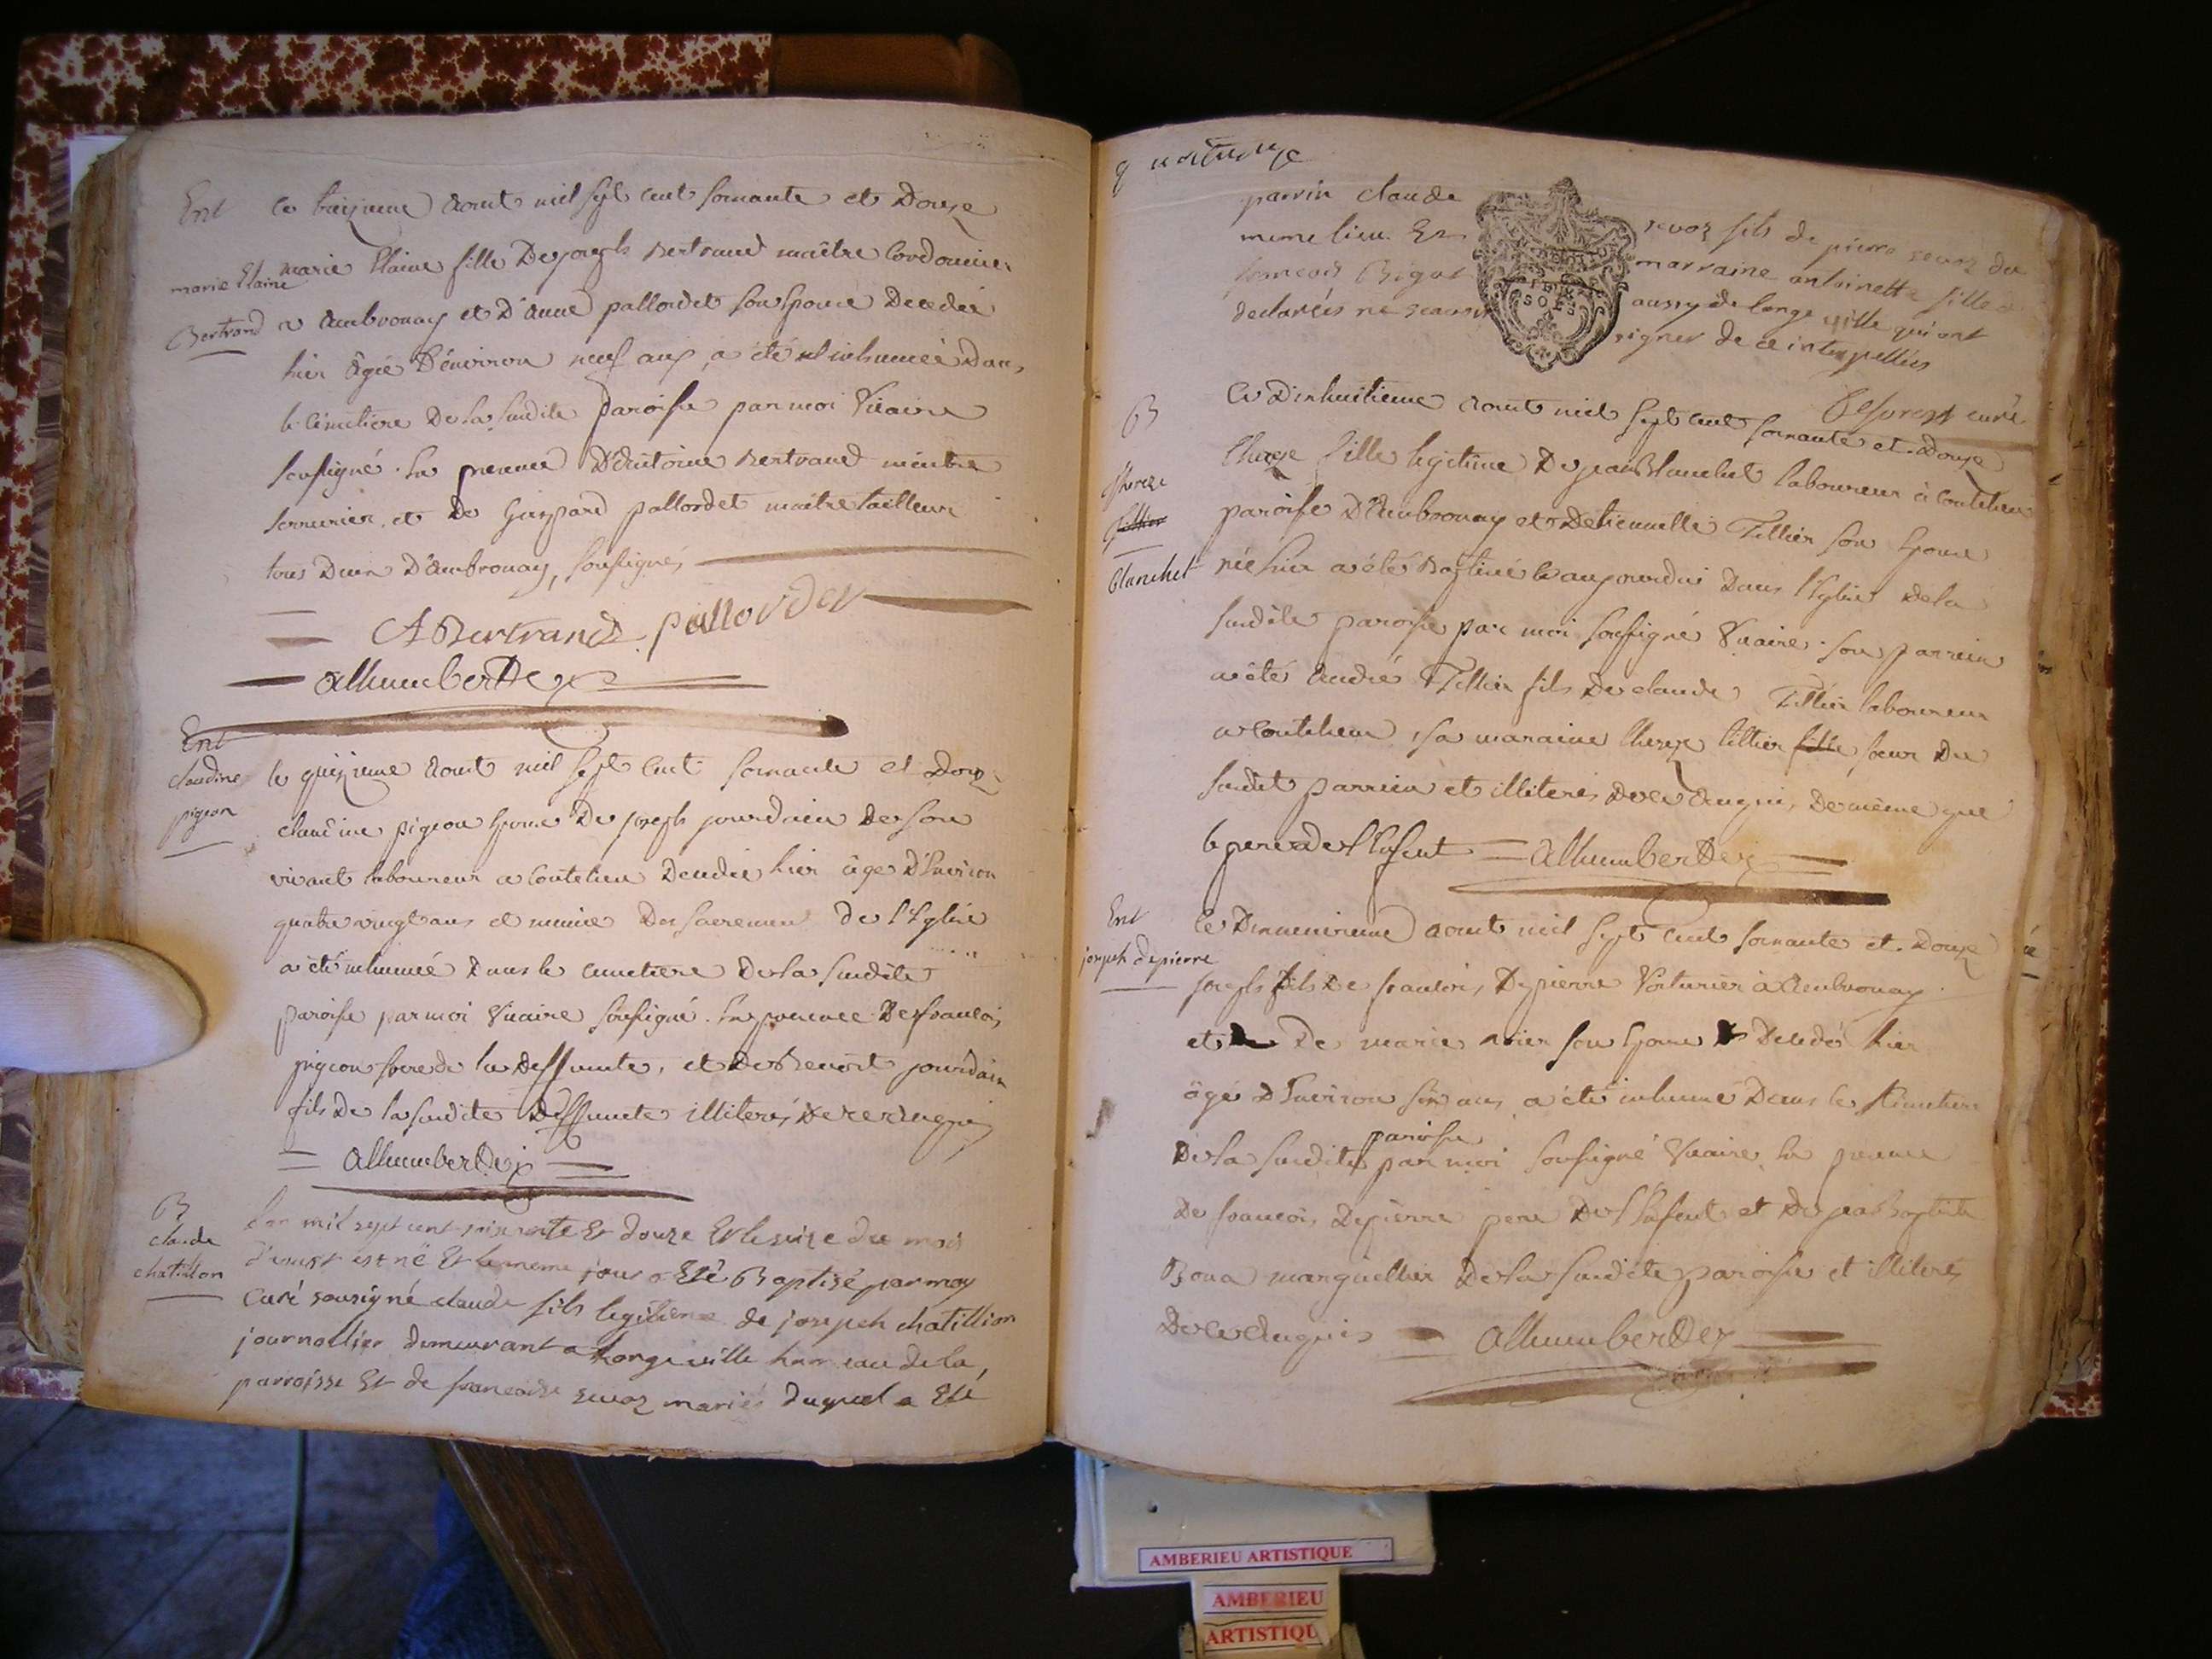 Ent
le treizieme aout mil sept cent soixante et douze
marie Elaine
Bertrand
marie Elaine fille De joseph Bertrand maître Cordonnier
a Ambronay et D'anne pallordet son Epouse Decedée
hier âgée D'environ neuf ans, a été inhumée Dans
le Cimetiere De la susdite paroisse par moi Vicaire
soussigné. En presence D'Antoine Bertrand maitre
serrurier, et De Gaspard pallordet maitre tailleur
tous Deux D'Ambronay, soussignés
A Bertrand pallordet
alhumbert
Ent
claudine
pigeon
le quizieme aout mil sept cent soixante et Douze
claudine pigeon Epouse De joseph jourdain De son
vivant laboureur a Coutelieu Decedée hier âgé D'Environ
quatre vingt ans et munie Des sacremens de l'Eglise
a été inhumée Dans le cimetiere De la susdite
paroisse par moi Vicaire soussigné. En presence De francois
pigeon frere de la Deffunte, et De Benoit jourdain
fils De la susdite Deffunte illiterés De ce enquis
alhumbert
B
claude
chatillon
L'an mil sept cent soixante Et douze Et le seize du mois
d'aoust est né Et le meme jour a Eté Baptisé par moy
Curé sousigné claude fils legitime de joseph chatillion
journallier demeurant a longeville hameau de la
parroisse Et de francoise suoz mariés duquel a Eté
parrin claude suoz fils de pierre suoz du
meme lieu Et marraine antoinette fille de
francois Bigot aussy de longeville qui ont
declarés ne scavoir signer de ce interpellés
curé
B
therese
Tillier
Blanchet
Le Dixhuitieme aout mil sept cent soixante et Douze
therese fille legitime De jean Blanchet laboureur à Coutelieu
paroisse D'Ambronay et D'etiennette Tillier son Epouse
née hier a été Baptisé le aujourdui Dans l'Eglise De la
susdite paroisse par moi soussigné Vicaire. son parrein
a été André Tillier fils De claude Tillier laboureur
a Coutelieu, sa maraine therese tillier fille soeur Du
susdit parrein et illiterés De ce enquis, De même que
le pere De l'Enfent alhumbert
Ent
joseph depierre
Le Dixneuvieme aout mil sept cent soixante et Douze
joseph fils De francois Depierre Voiturier à Ambronay
et De marie son Epouse Decedé hier
âgé D'Environ six ans a été inhumé Dans le Cimetiere
De la susdite paroisse par moi soussigné Vicaire En presence
De francois Depierre pere De l'Enfent et De jean Baptiste
Bona marguellier De la susdite paroisse et illiterés
De ce enquis alhumbert
AMBERIEU ARTISTIQUE
AMBERIEU
ARTISTIQU